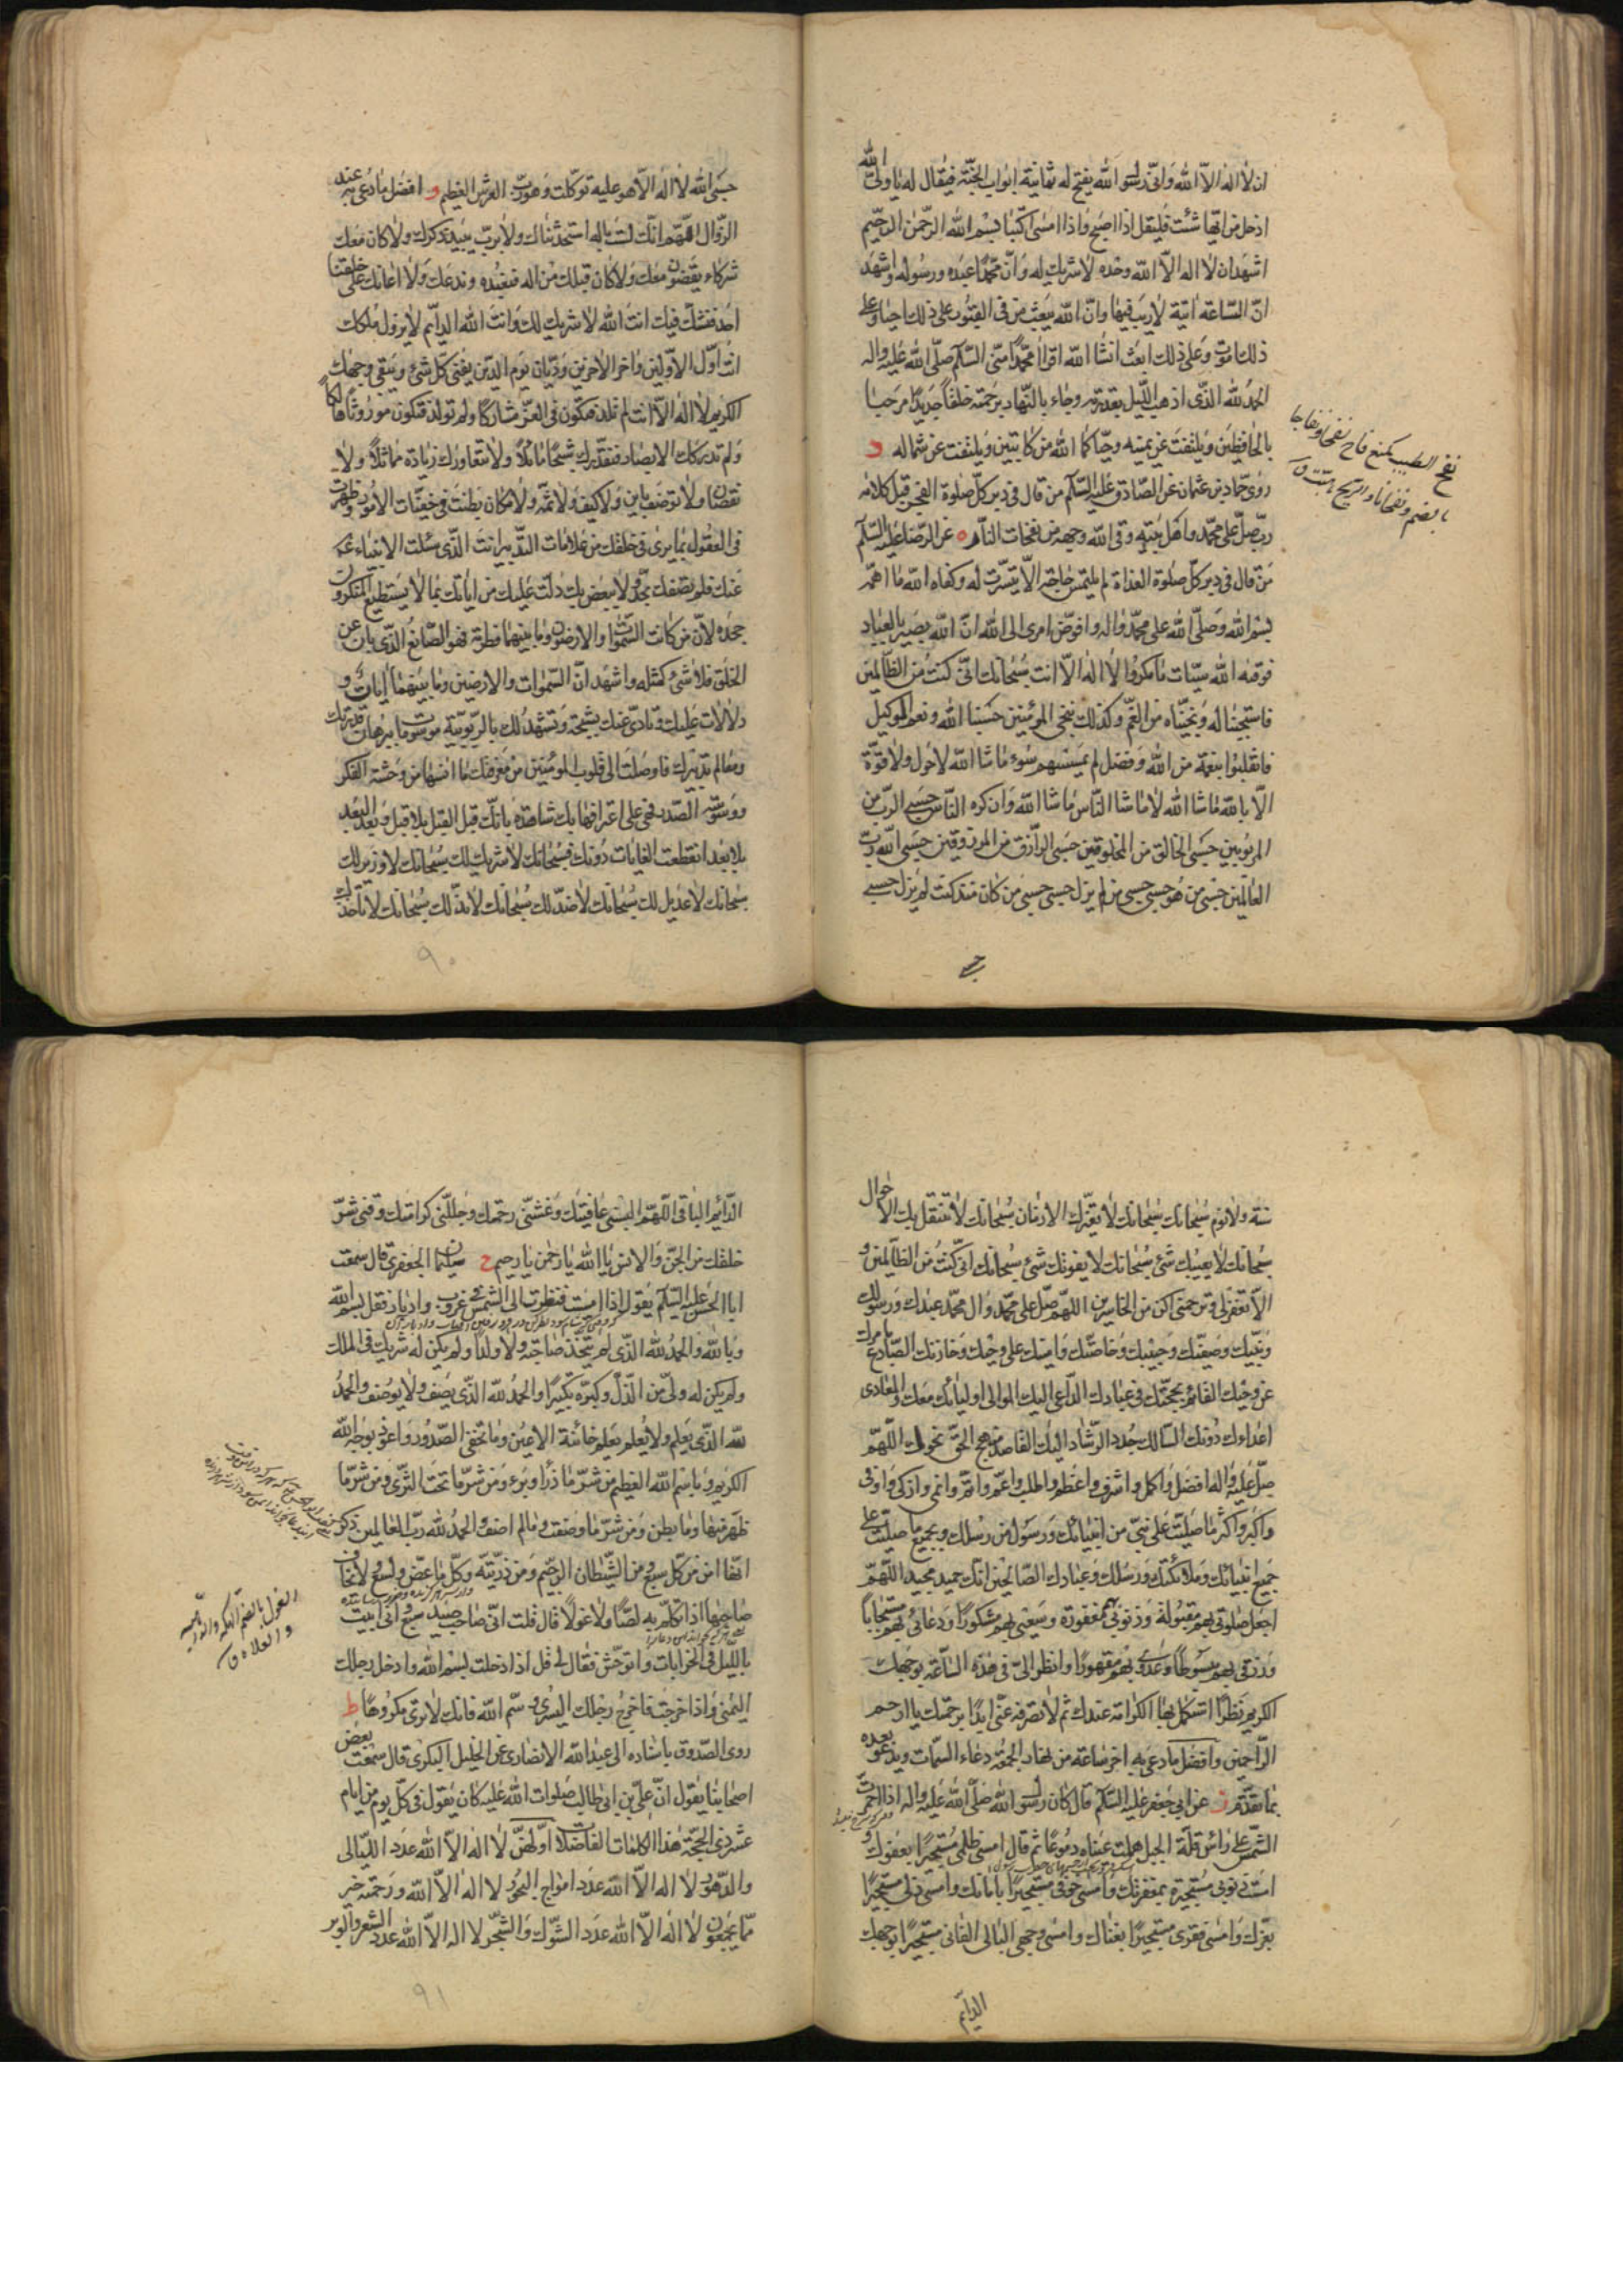 ان لا اله الا الله وانى رسول الله يفتح له ثمانية ابواب الجنة فيقال له يا ولى الله
ادخل من ايها شئت فليقل اذا اصبح واذا امسى اكتبا بسم الله الرحمن الرحيم
اشهد ان لا اله الا الله وحده لا شريك له وان محمدا عبده ورسوله واشهد
ان الساعة اتية لا ريب فيها وان الله يبعث من فى القبور على ذلك احيا وعلى
ذلك اموت وعلى ذلك ابعث انشا الله اقرأا محمدا منى السلم صلى الله عليه واله
الحمد لله الذى اذهب الليل بقدرته وجاء بالنهار برحمته خلقا جديدا مرحبا
بالحافظين ويلتفت عن يمينه وحياكما الله من كاتبين ويلتفت عن شماله د
روى حماد بن عثمان عن الصادق عليه السلم من قال فى دبر كل صلوة الفجر قبل كلامه
رب صل على محمد واهل بيته وقى الله وجهه من نفحات النار ه عن الرضا عليه السلم
من قال فى دبر كل صلوة الغداة لم يلتمس حاجة الا تيسرت له وكفاه الله ما اهمه
بسم الله وصلى الله على محمد واله وافوض امرى الى الله ان الله بصير بالعباد
فوقيه الله سيئات ما مكروا لا اله الا انت سبحانك انى كنت من الظالمين
فاستجبنا له ونجيناه من الغم وكذلك ننجى المؤمنين حسبنا الله ونعم الوكيل
فانقلبوا بنعمة من الله وفضل لم يمسسهم سوء ما شا الله لا حول ولا قوة
الا بالله ما شا الله لا ما شا الناس ما شا الله وان كره الناس حسبى الرب من
المربوبين حسبى الخالق من المخلوقين حسبى الرازق من المرزوقين حسبى الله رب
العالمين حسبى من هو حسبى حسبى من لم يزل حسبى حسبى من كان منذ كنت لم يزل حسبى
حسبى
حسبى الله لا اله الا هو عليه توكلت وهو رب العرش العظيم و افضل ما دعى به عند
الزوال اللهم انك لست باله استحدثناك ولا برب يبيد ذكرك ولا كان معك
شركاء يقضون معك ولا كان قبلك من اله فنعبده وندعك ولا اعانك على خلقنا
احد فنشك فيك انت الله لا شريك لك وانت الله الدايم لا يزول ملكك
انت اول الاولين واخر الاخرين وديان يوم الدين يفنى كل شئ ويبقى وجهك
الكريم لا اله الا انت لم تلد فتكون فى العز مشاركا ولم تولد فتكون موروثا هالكا
ولم تدركك الابصار فتقدرك شبحا ماثلا ولا تتعاورك زيادة مماثلا ولا
نقصان ولا توصف باين ولا كيف ولا ثم ولا مكان بطنت فى خفيات الامور وظهرت
فى العقول بما يرى فى خلقك من علامات التدبير انت الذى سئلت الانبياء عنه
عنك فلم تصفك بحد ولا ببعض بل دلت عليك من اياتك بما لا يستطيع المنكرون
جحده لان من كانت السموات والارضون وما بينهما فطرته فهو الصانع الذى بان عن
الخلق فلا شئ كمثله واشهد ان السموات والارضين وما بينهما ايات و
دلالات عليك تؤدى عنك بحجة وتشهد لك بالربوبية موسومات ببرهان قدرتك
ومعالم تدبيرك فاوصلت الى قلوب المؤمنين من معرفتك ما انسها من وحشة الفكر
ووسوسة الصدر فهى على اعترافها بك شاهدة بانك قبل القبل بلا قبل وبعد البعد
بلا بعد انقطعت الغايات دونك فسبحانك لا شريك لك سبحانك لا وزير لك
سبحانك لا عديل لك سبحانك لا ضد لك سبحانك لا ند لك سبحانك لا تاخذك
٩٠
سنة ولا نوم سبحانك سبحانك لا تغيرك الازمان سبحانك لا تنتقل بك الاحوال
سبحانك لا يعييك شئ سبحانك لا يفوتك شئ سبحانك انى كنت من الظالمين و
الا تغفر لى وترحمنى اكن من الخاسرين اللهم صل على محمد وال محمد عبدك ورسولك
ونبيك وصفيك وحبيبك وخاصتك وامينك على وحيك وخازنك الصادع بامرك
عن وحيك القائم بحجتك فى عبادك الداعى اليك الموالى اوليائك معك والمعادى
اعداءك دونك السالك جدد الرشاد اليك القاصد منهج الحق نحوك اللهم
صل عليه واله افضل واكمل واشرف واعظم واطيب واعم واتم وانمى وازكى واوفى
واكبر واكثر ما صليت على نبى من انبيائك ورسول من رسلك وبجميع ما صليت على
جميع انبيائك وملائكتك ورسلك وعبادك الصالحين انك حميد مجيد اللهم
اجعل صلوتى بهم مقبولة وذنوبى بهم مغفورة وسعيى بهم مشكورا ودعائى بهم مستجابا
ورزقى بهم مبسوطا وعدوى بهم مقهورا وانظر الى فى هذه الساعة بوجهك
الكريم نظرة استكمل بها الكرامة عندك ثم لا تصرفه عنى ابدا برحمتك يا ارحم
الراحمين وافضل ما دعى به اخر ساعة من نهار الجمعة دعاء السمات ويدعو بعده
بما تقدم ز عن ابى جعفر عليه السلم قال كان رسول الله صلى الله عليه واله اذا احمرت
الشمس على رأس قلة الجبل هملت عيناه دموعا ثم قال امسى ظلمى مستجيرا بعفوك و
امست ذنوبى مستجيرة بمغفرتك وامسى خوفى مستجيرا بامانك وامسى ذلى مستجيرا
بعزك وامسى فقرى مستجيرا بغناك وامسى وجهى البالى الفانى مستجيرا بوجهك
الدايم
الدائم الباقى اللهم البسنى عافيتك وغشنى رحمتك وجللنى كرامتك وقنى شر
خلقك من الجن والانس يا الله يا رحمن يا رحيم ح سليمان الجعفرى قال سمعت
ابا الحسن عليه السلم يقول اذا امسيت فنظرت الى الشمس فى غروب وادبار فقل بسم الله
وبالله والحمد لله الذى لم يتخذ صاحبة ولا ولدا ولم يكن له شريك فى الملك
ولم يكن له ولى من الذل وكبره تكبيرا والحمد لله الذى يصف ولا يوصف والحمد
لله الذى يعلم ولا يعلم يعلم خائنة الاعين وما تخفى الصدور واعوذ بوجه الله
الكريم وباسم الله العظيم من شر ما ذرأ وبرء ومن شر ما تحت الثرى ومن شر ما
ظهر منها وما بطن ومن شر ما وصفت وما لم اصف والحمد لله رب العالمين ذكر
انها امن من كل سبع ومن الشيطان الرجيم ومن ذريته وكل ما عض ولسع ولا يخاف
صاحبها اذا تكلم به لصا ولا غولا قال قلت انى صاحب صيد سبع وانى ابيت
بالليل فى الخرابات واتوحش فقال لى قل اذا دخلت بسم الله وادخل رجلك
اليمنى واذا خرجت فاخرج رجلك اليسرى وسم الله فانك لا ترى مكروها ط
روى الصدوق باسناده الى عبد الله الانصارى عن الخليل البكرى قال سمعت بعض
اصحابنا يقول ان على بن ابى طالب صلوات الله عليه كان يقول فى كل يوم من ايام
عشر ذى الحجة هذا الكلمات الفاضلات اولهن لا اله الا الله عدد الليالى
والدهور لا اله الا الله عدد امواج البحور لا اله الا الله ورحمته خير
مما يجمعون لا اله الا الله عدد الشوك والشجر لا اله الا الله عدد الشعر والوبر
٩١